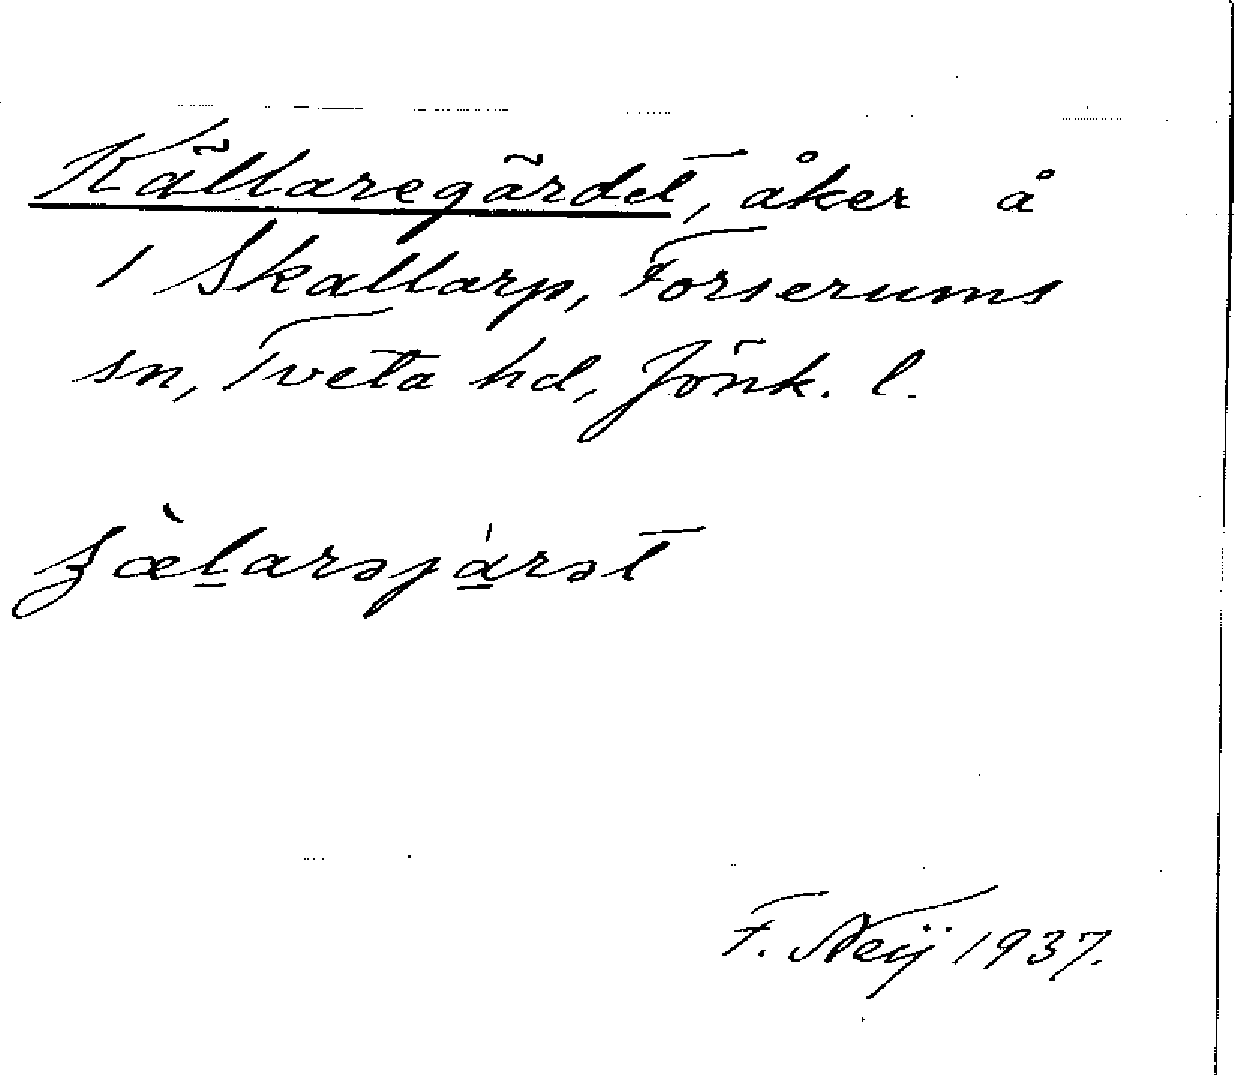 Källaregärdet, åker å
1 Skallarp, Forserums
sn, Tveta hd, Jönk. l.
F. Neij 1937.